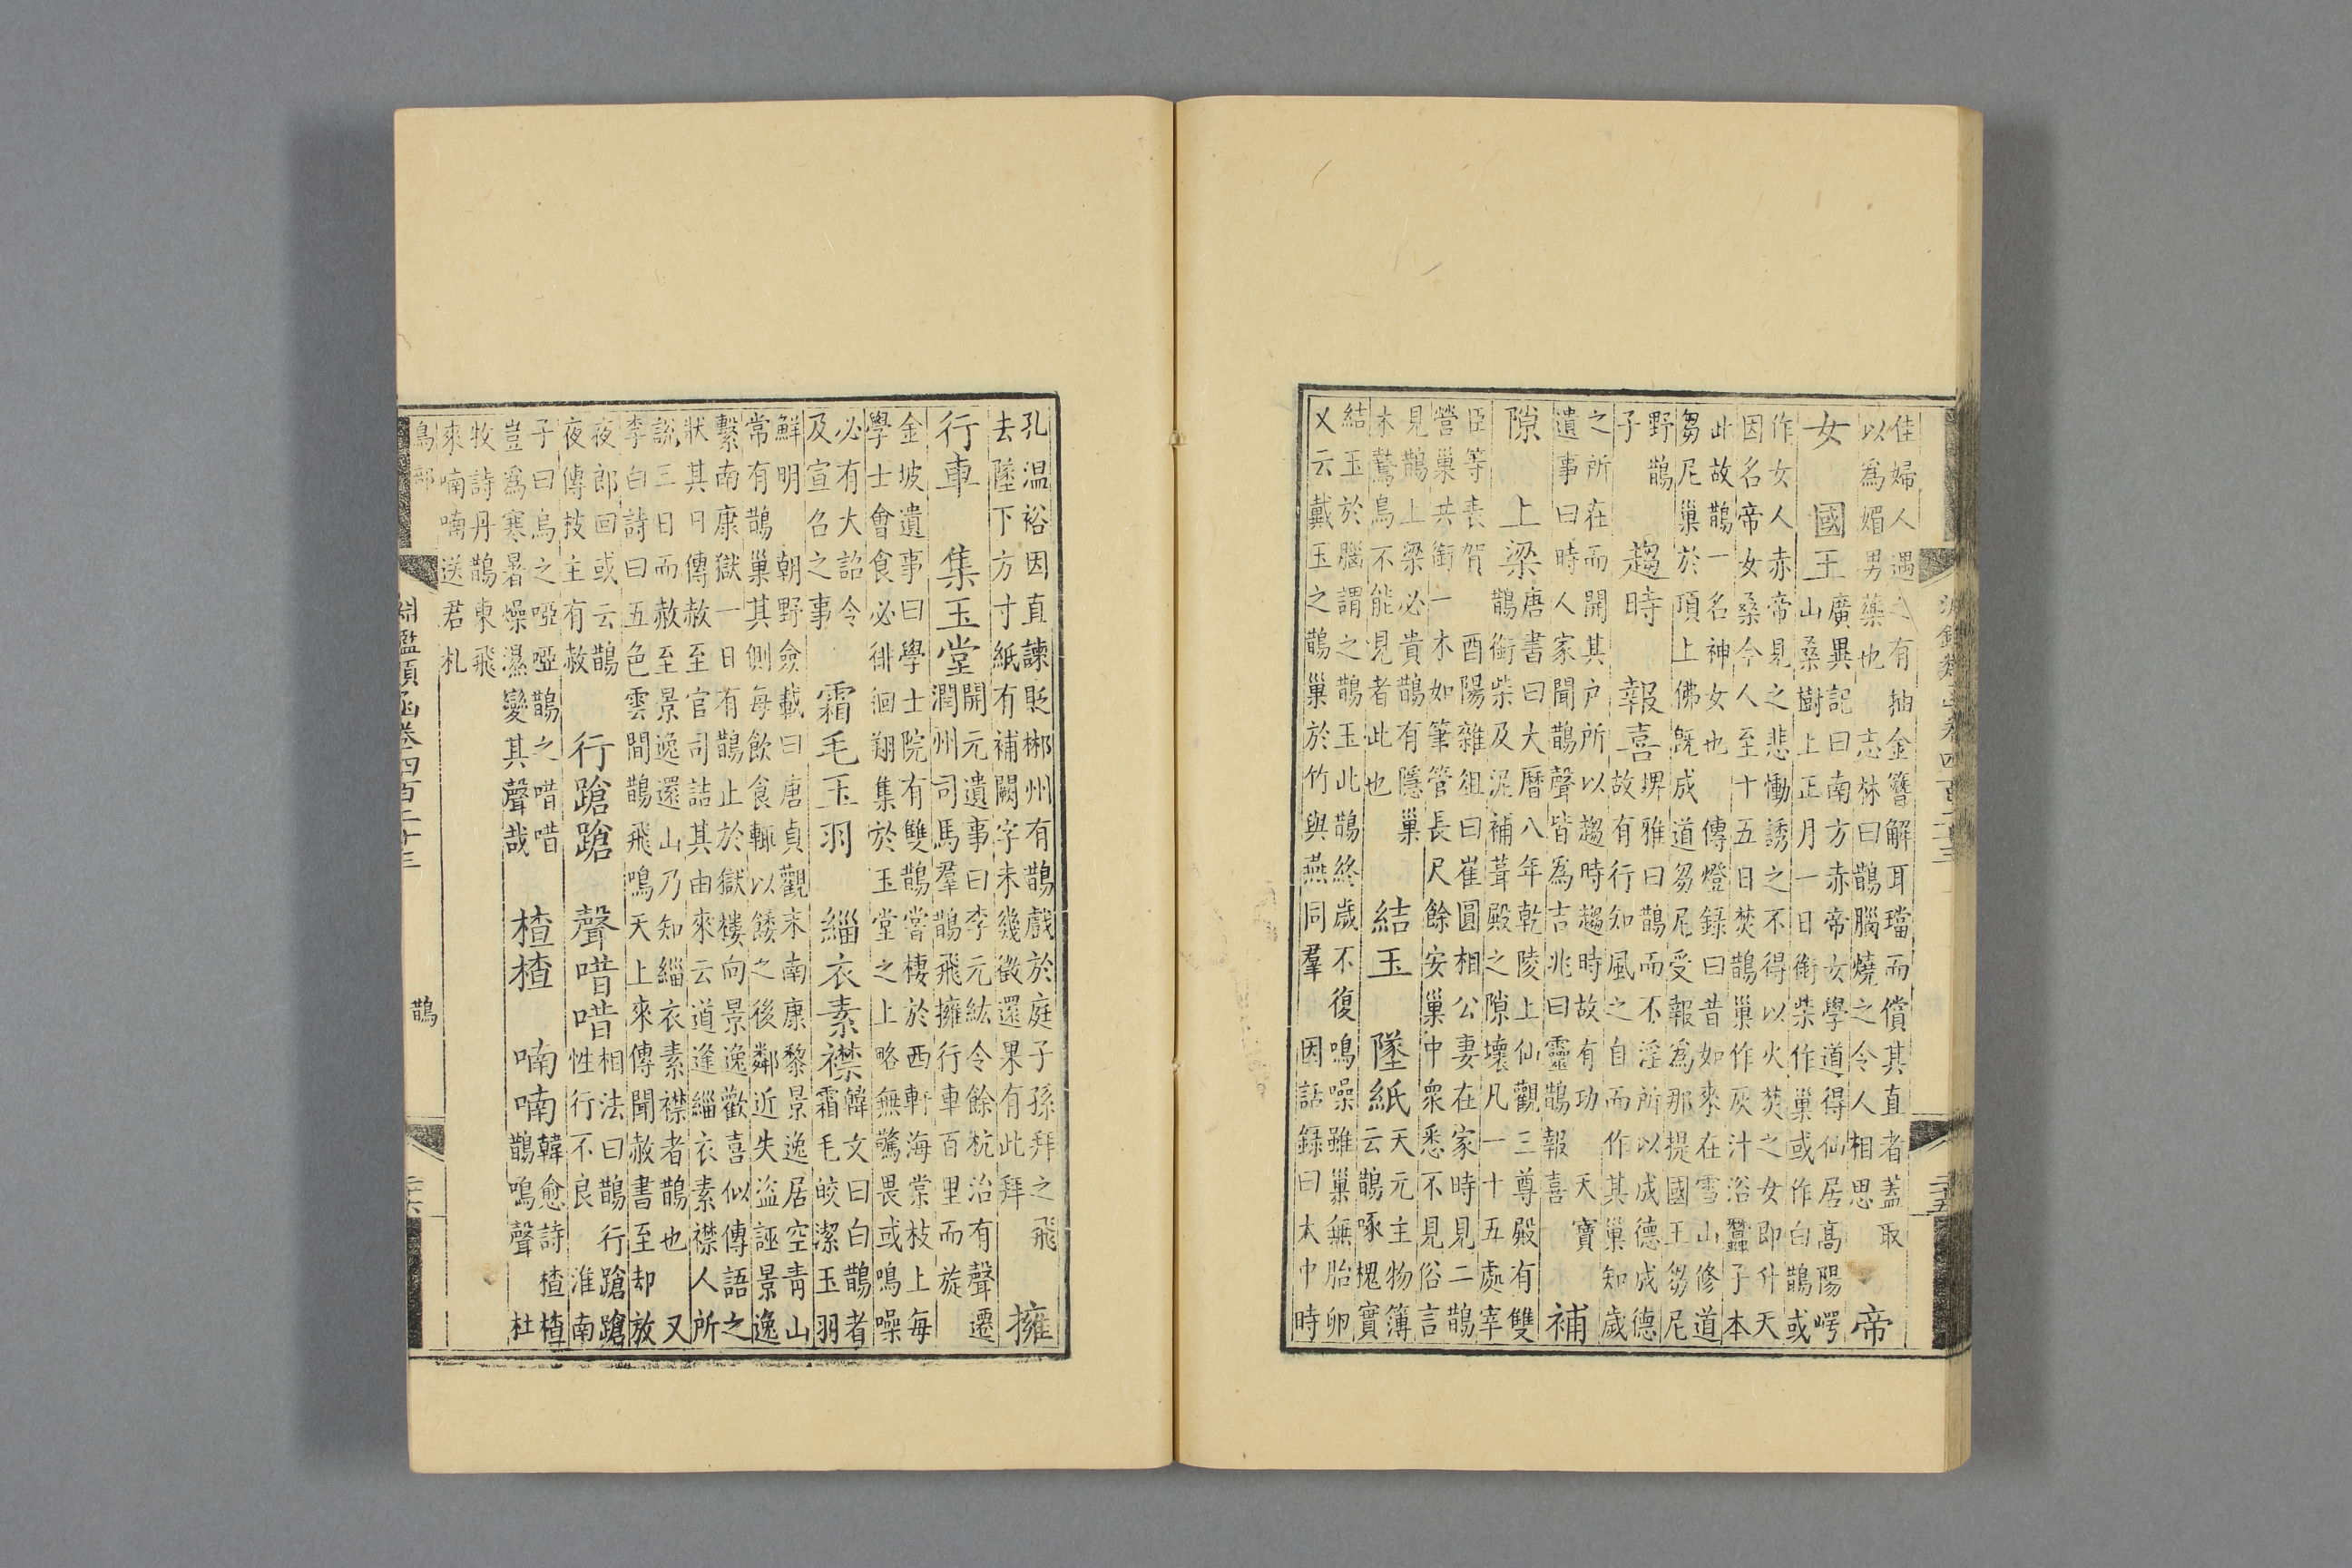 佳婦人遇之有抽金簪解耳璫而償其直者蓋取
以爲媚男藥也 志林曰鵲腦燒之令人相思
帝
女 國王
廣異記曰南方赤帝女學道得仙居髙陽崿
山桑樹上正月一日銜柴作巢或作白鵲或
作女人赤帝見之悲慟誘之不得以火焚之女即升天
因名帝女桑今人至十五日焚鵲巢作灰汁浴蠶子本
此故鵲一名神女也 傳燈録曰昔如來在雪山修道
芻尼巢於頂上佛既成道芻尼受報爲那提國王芻尼
野鵲
子
趨時 報喜
埤雅曰鵲而不淫所以成德成德
故有行知風之自而作其巢知歲
之所在而開其户所以趨時趨時故有功 天寶
遺事曰時人家聞鵲聲皆爲吉兆曰靈鵲報喜
補
隙 上梁
唐書曰大曆八年乾陵上仙觀三尊殿有雙
鵲銜柴及泥補葺殿之隙壞凡一十五處宰
臣等表賀 酉陽雜俎曰崔圓相公妻在家時見二鵲
營巢共銜一木如筆管長尺餘安巢中衆悉不見俗言
見鵲上梁必貴鵲有隱巢
木鷙鳥不能見者此也
結玉 墜紙
天元主物簿
云鵲啄槐實
結玉於腦謂之鵲玉此鵲終歲不復鳴噪雖巢無胎卵
又云戴玉之鵲巢於竹與燕同羣 因話録曰太中時
孔温裕因直諫貶郴州有鵲戲於庭子孫拜之飛
去墜下方寸紙有補闕字未幾徵還果有此拜
擁
行車 集玉堂
開元遺事曰李元紘令餘杭治有聲遷
潤州司馬羣鵲飛擁行車百里而旋
金坡遺事曰學士院有雙鵲嘗棲於西軒海棠枝上每
學士會食必徘徊翔集於玉堂之上略無驚畏或鳴噪
必有大詔令
及宣召之事
霜毛玉羽 緇衣素襟
韓文曰白鵲者
霜毛皎潔玉羽
鮮明 朝野僉載曰唐貞觀末南康黎景逸居空青山
常有鵲巢其側每飲食輒以餧之後鄰近失盜誣景逸
繫南康獄一日有鵲止於獄樓向景逸歡喜似傳語之
狀其日傳赦至官司詰其由來云道逢緇衣素襟人所
説三日而赦至景逸還山乃知緇衣素襟者鵲也 又
李白詩曰五色雲間鵲飛鳴天上來傳聞赦書至却放
夜郎回或云鵲
夜傳技主有赦
行蹌蹌 聲唶唶
相法曰鵲行蹌蹌
性行不良 淮南
子曰烏之啞啞鵲之唶唶
豈爲寒暑燥濕變其聲哉
楂楂 喃喃
韓愈詩楂楂
鵲鳴聲 杜
牧詩丹鵲東飛
來喃喃送君札
淵鑑類函卷四百二十三 鵲 二十六
鳥部